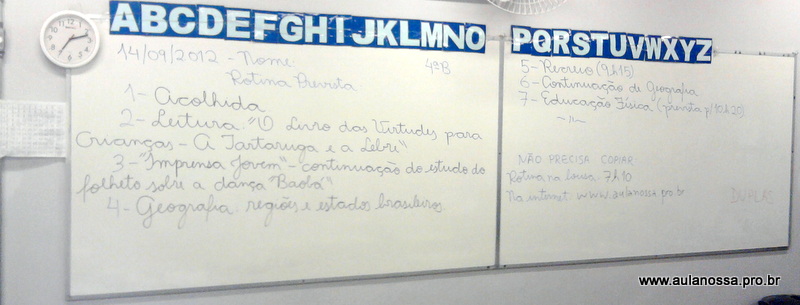 ABCDEFGHIJKLMNO
PQRSTUVWXYZ
14/09/2012 - Nome:
4ºB
Rotina Prevista
1- Acolhida
2- Leitura: "O Livro das Virtudes para
Crianças - A Tartaruga e a Lebre"
3- "Imprensa Jovem" - continuação do estudo do
folheto sobre a dança "Baobá"
4- Geografia: regiões e estados brasileiros.
5- Recreio (9h15)
6- Continuação de Geografia
7- Educação Física (prevista p/10h20)
NÃO PRECISA COPIAR:
Rotina na lousa: 7h10
Na internet: www.aulanossa.pro.br
DUPLAS
www.aulanossa.pro.br